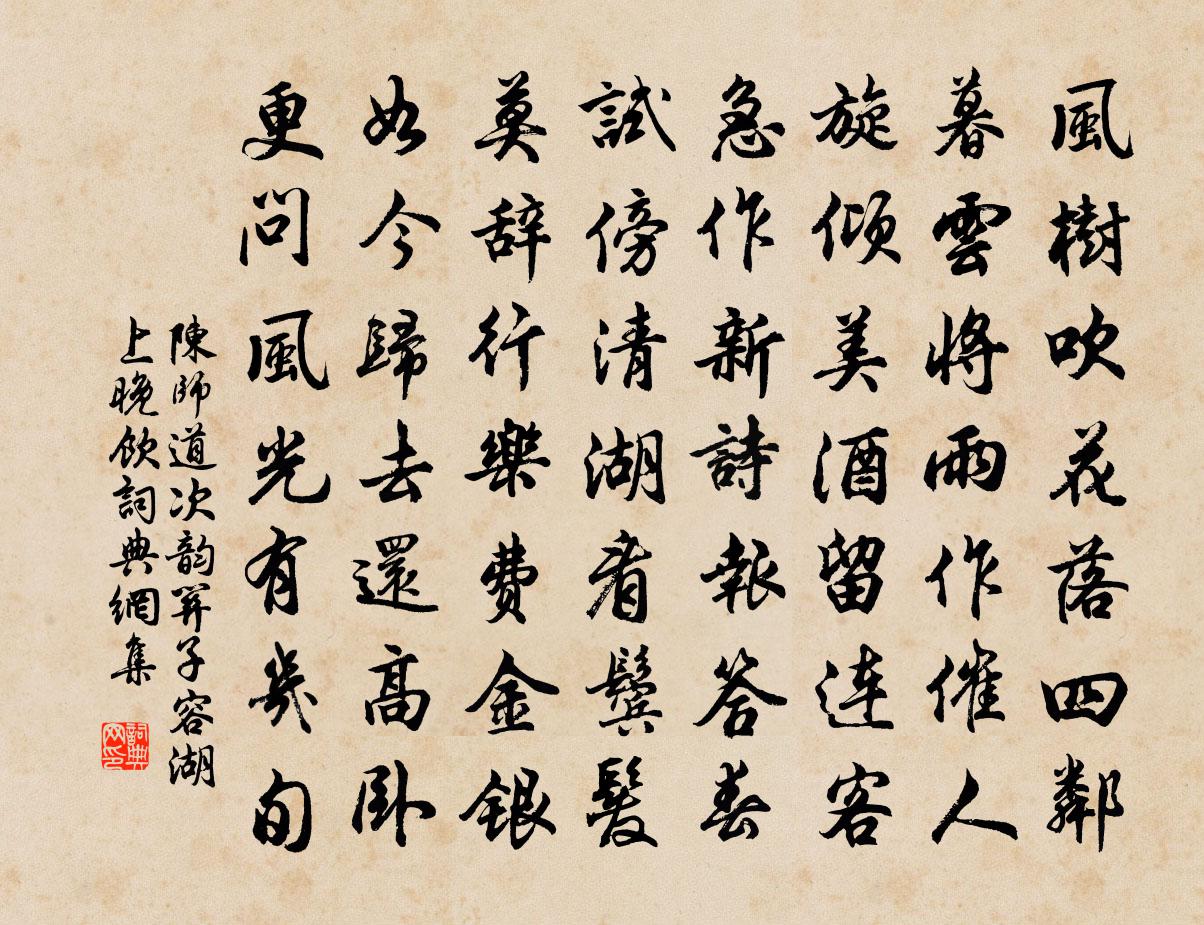 風樹吹花落四鄰
暮雲將雨作催人
旋傾美酒留連客
急作新詩報答春
試傍清湖看鬢髮
莫辞行樂費金銀
如今歸去還高卧
更問風光有幾旬
陳師道次韵羿子容湖
上晚飲詞典網集
詞典
网印